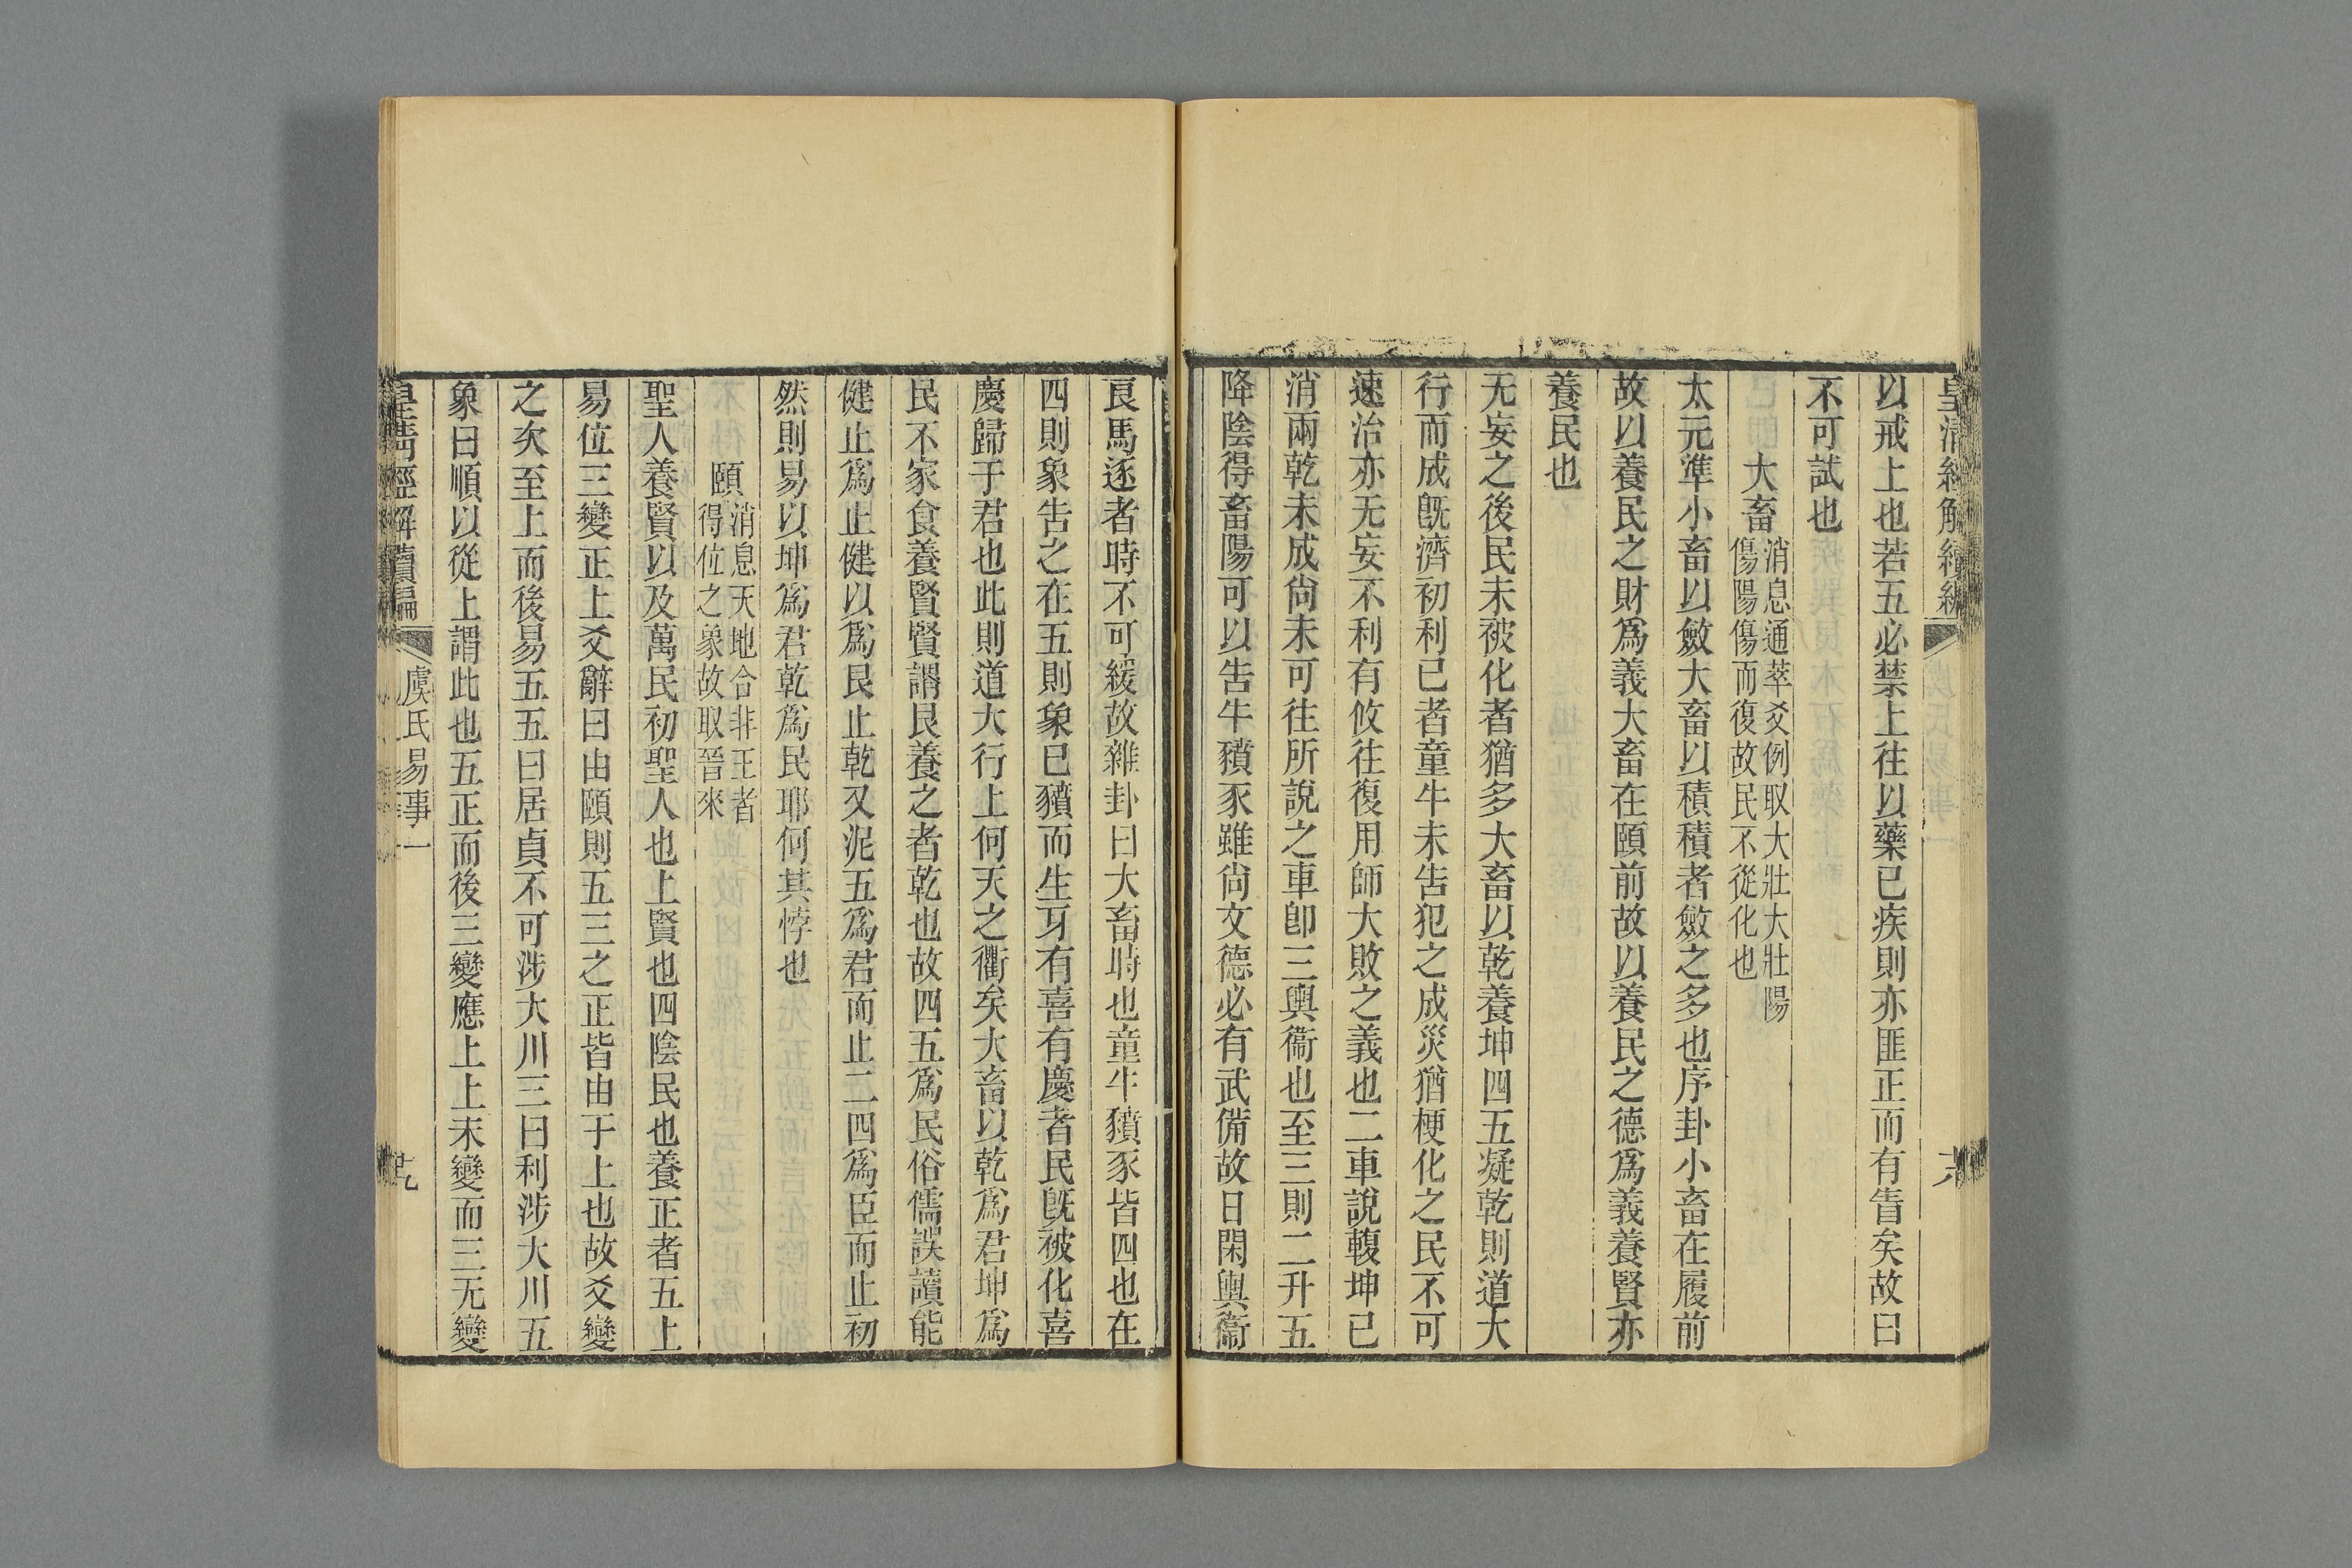 皇清經解續編
以戒上也若五必禁上往以藥已疾則亦匪正而有眚矣故曰
不可試也
大畜
消息通萃爻例取大壯大壯陽
傷陽傷而復故民不從化也
太元準小畜以斂大畜以積積者斂之多也序卦小畜在履前
故以養民之財爲義大畜在頤前故以養民之德爲義養賢亦
養民也
无妄之後民未被化者猶多大畜以乾養坤四五凝乾則道大
行而成旣濟初利已者童牛未告犯之成災猶梗化之民不可
速治亦无妄不利有攸往復用師大敗之義也二車說輹坤已
消兩乾未成尙未可往所說之車卽三輿衞也至三則二升五
降陰得畜陽可以告牛豶豕雖尙文德必有武備故日閑輿衞
良馬逐者時不可緩故雜卦曰大畜時也童牛豶豕皆四也在
四則象告之在五則象已豶而生牙有喜有慶者民旣被化喜
慶歸于君也此則道大行上何天之衢矣大畜以乾爲君坤爲
民不家食養賢賢謂艮養之者乾也故四五爲民俗儒誤讀能
健止爲止健以爲艮止乾又泥五爲君而止二四爲臣而止初
然則易以坤爲君乾爲民耶何其悖也
頤
消息天地合非王者
得位之象故取晉來
聖人養賢以及萬民初聖人也上賢也四陰民也養正者五上
易位三變正上爻辭曰由頤則五三之正皆由于上也故爻變
之次至上而後易五五曰居貞不可涉大川三曰利涉大川五
象曰順以從上謂此也五正而後三變應上上未變而三无變
皇淸經解續編
虞氏易事一